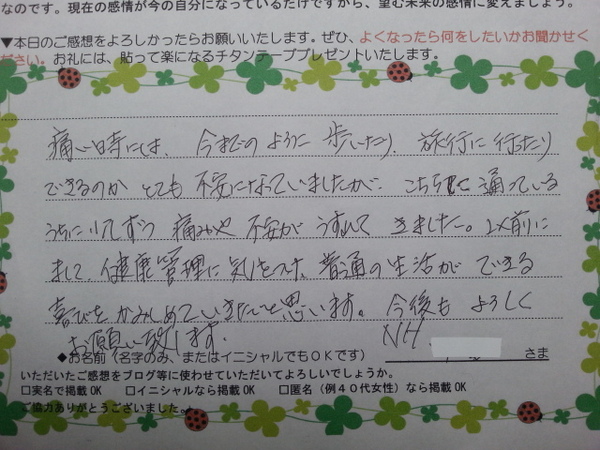 なのです。現在の感情が今の自分になっているだけですから、望む未来の感情に変えましょう。
▼本日のご感想をよろしかったらお願いいたします。ぜひ、よくなったら何をしたいかお聞かせく
ださい。お礼には、貼って楽になるチタンテーププレゼントいたします。
痛い時には、今までのように歩いたり、旅行に行ったり
できるのかとても不安になっていましたが、こちらに通っている
うちに少しずつ痛みや不安がうすれてきました。以前に
まして、健康管理に気をつけ、普通の生活ができる
喜びをかみしめていきたいと思います。今後もよろしく
お願い致します。
NH
◆お名前（名字のみ、またはイニシャルでもＯＫです） さま
いただいたご感想をブログ等に使わせていただいてよろしいでしょうか。
□実名で掲載 OK □イニシャルなら掲載 OK □匿名（例４０代女性）なら掲載 OK
ご協力ありがとうございました。